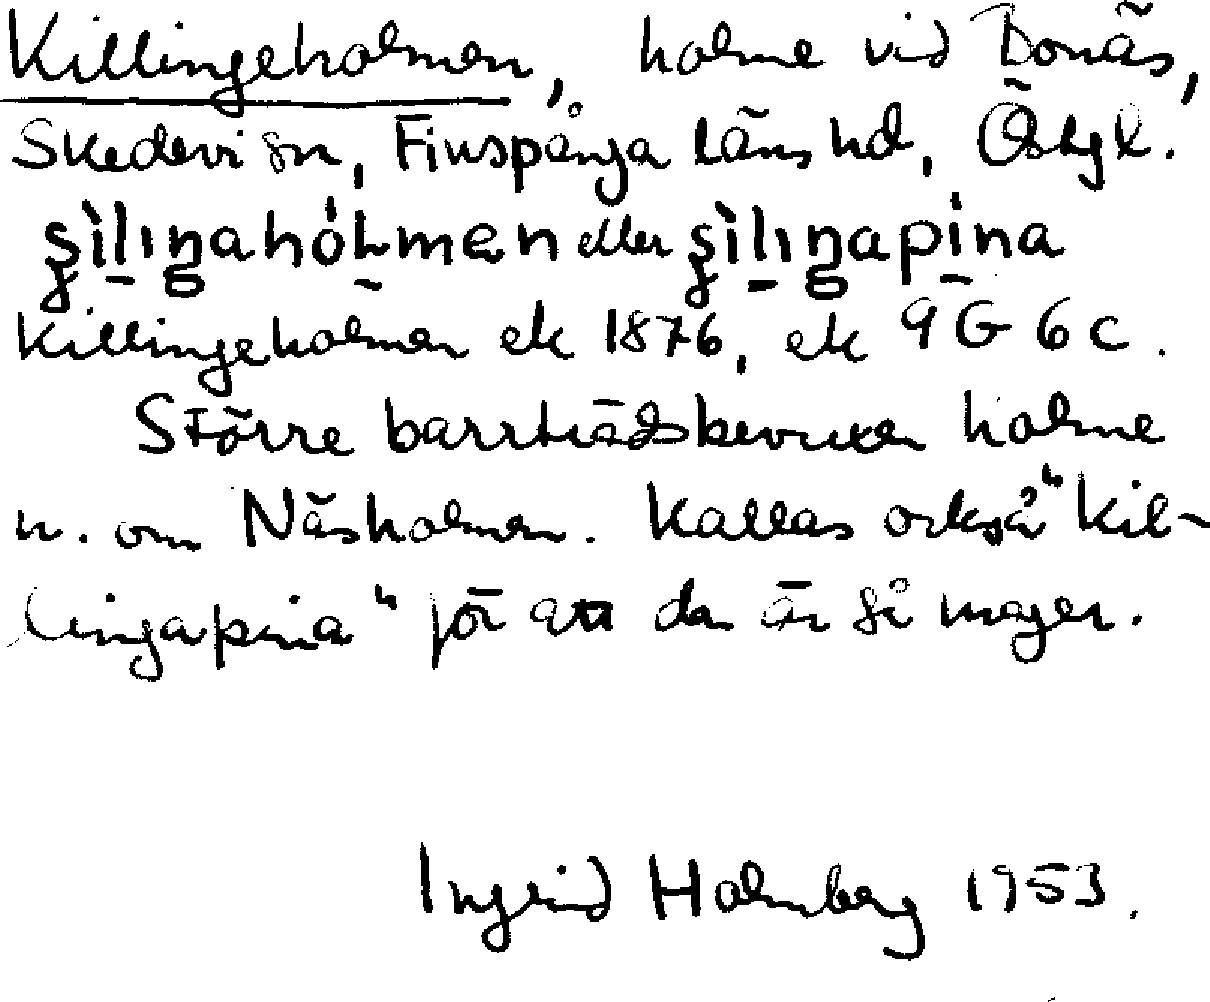 Killingeholmen, holme vid Bonäs,
Skedevi sn, Finspånga läns hd, Östgl.
şìlıŋahólmen eller şìlıŋapina
Killingeholmen ek 1876, ek 9G 6c.
Större barrträdsbevuxen holme
n. om Näsholmen. Kallas också "Kil-
lingapina" för att den är så mager.
Ingrid Holmberg 1953.